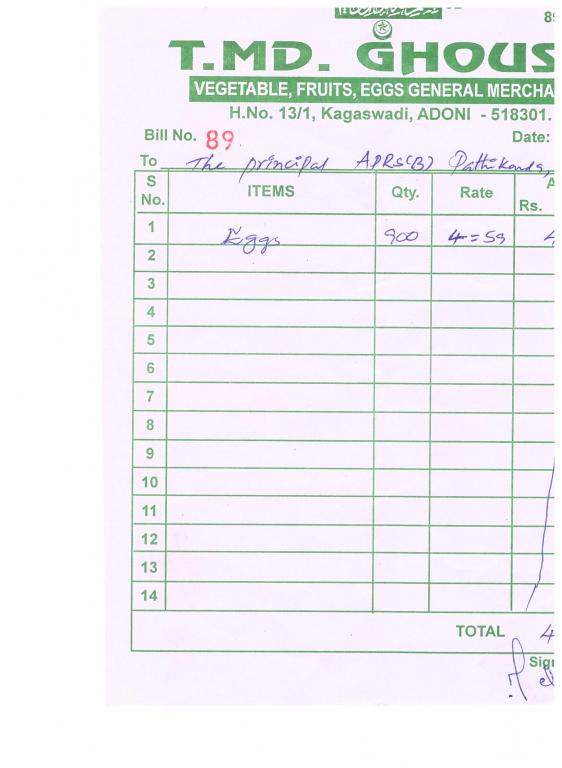 89
T.MD. GHOUS
VEGETABLE, FRUITS, EGGS GENERAL MERCHA
H.No. 13/1, Kagaswadi, ADONI - 518301.
Bill No. 89 Date:
To The principal APRS(B) Pathikonda,
S No. ITEMS Qty. Rate A
Rs.
1 Eggs 900 4=59 4
2
3
4
5
6
7
8
9
10
11
12
13
14
TOTAL 4
Sign